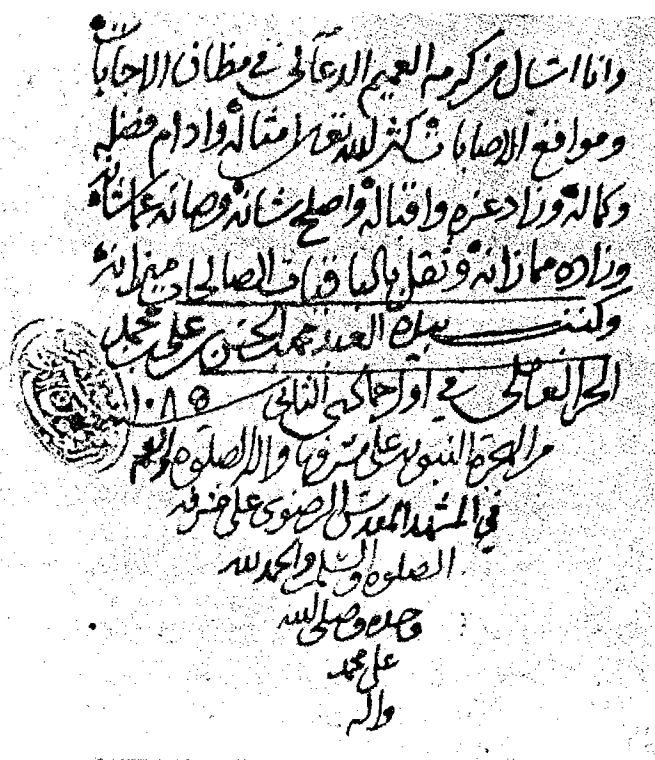 وانا اسال من كرمه العميم الدعا لي في مظان الاجابات
ومواقع الاصابات كثر الله تعالى امثاله وادام فضله
وكماله وزاد عزه واقباله واصلح شانه وصانه عما شانه
وزاده مما زانه وثقل بالباقيات الصالحات ميزانه
وكتب بيده العبد محمد بن الحسن بن علي بن محمد
الحر العاملي في اول جمادى الثاني ١٠٨٥
من الهجرة النبويه على مشرفها واله الصلوة والسلم
في المشهد المقدس الرضوي على مشرفه
الصلوة والسلم والحمد لله
وحده وصلى الله
على محمد
واله